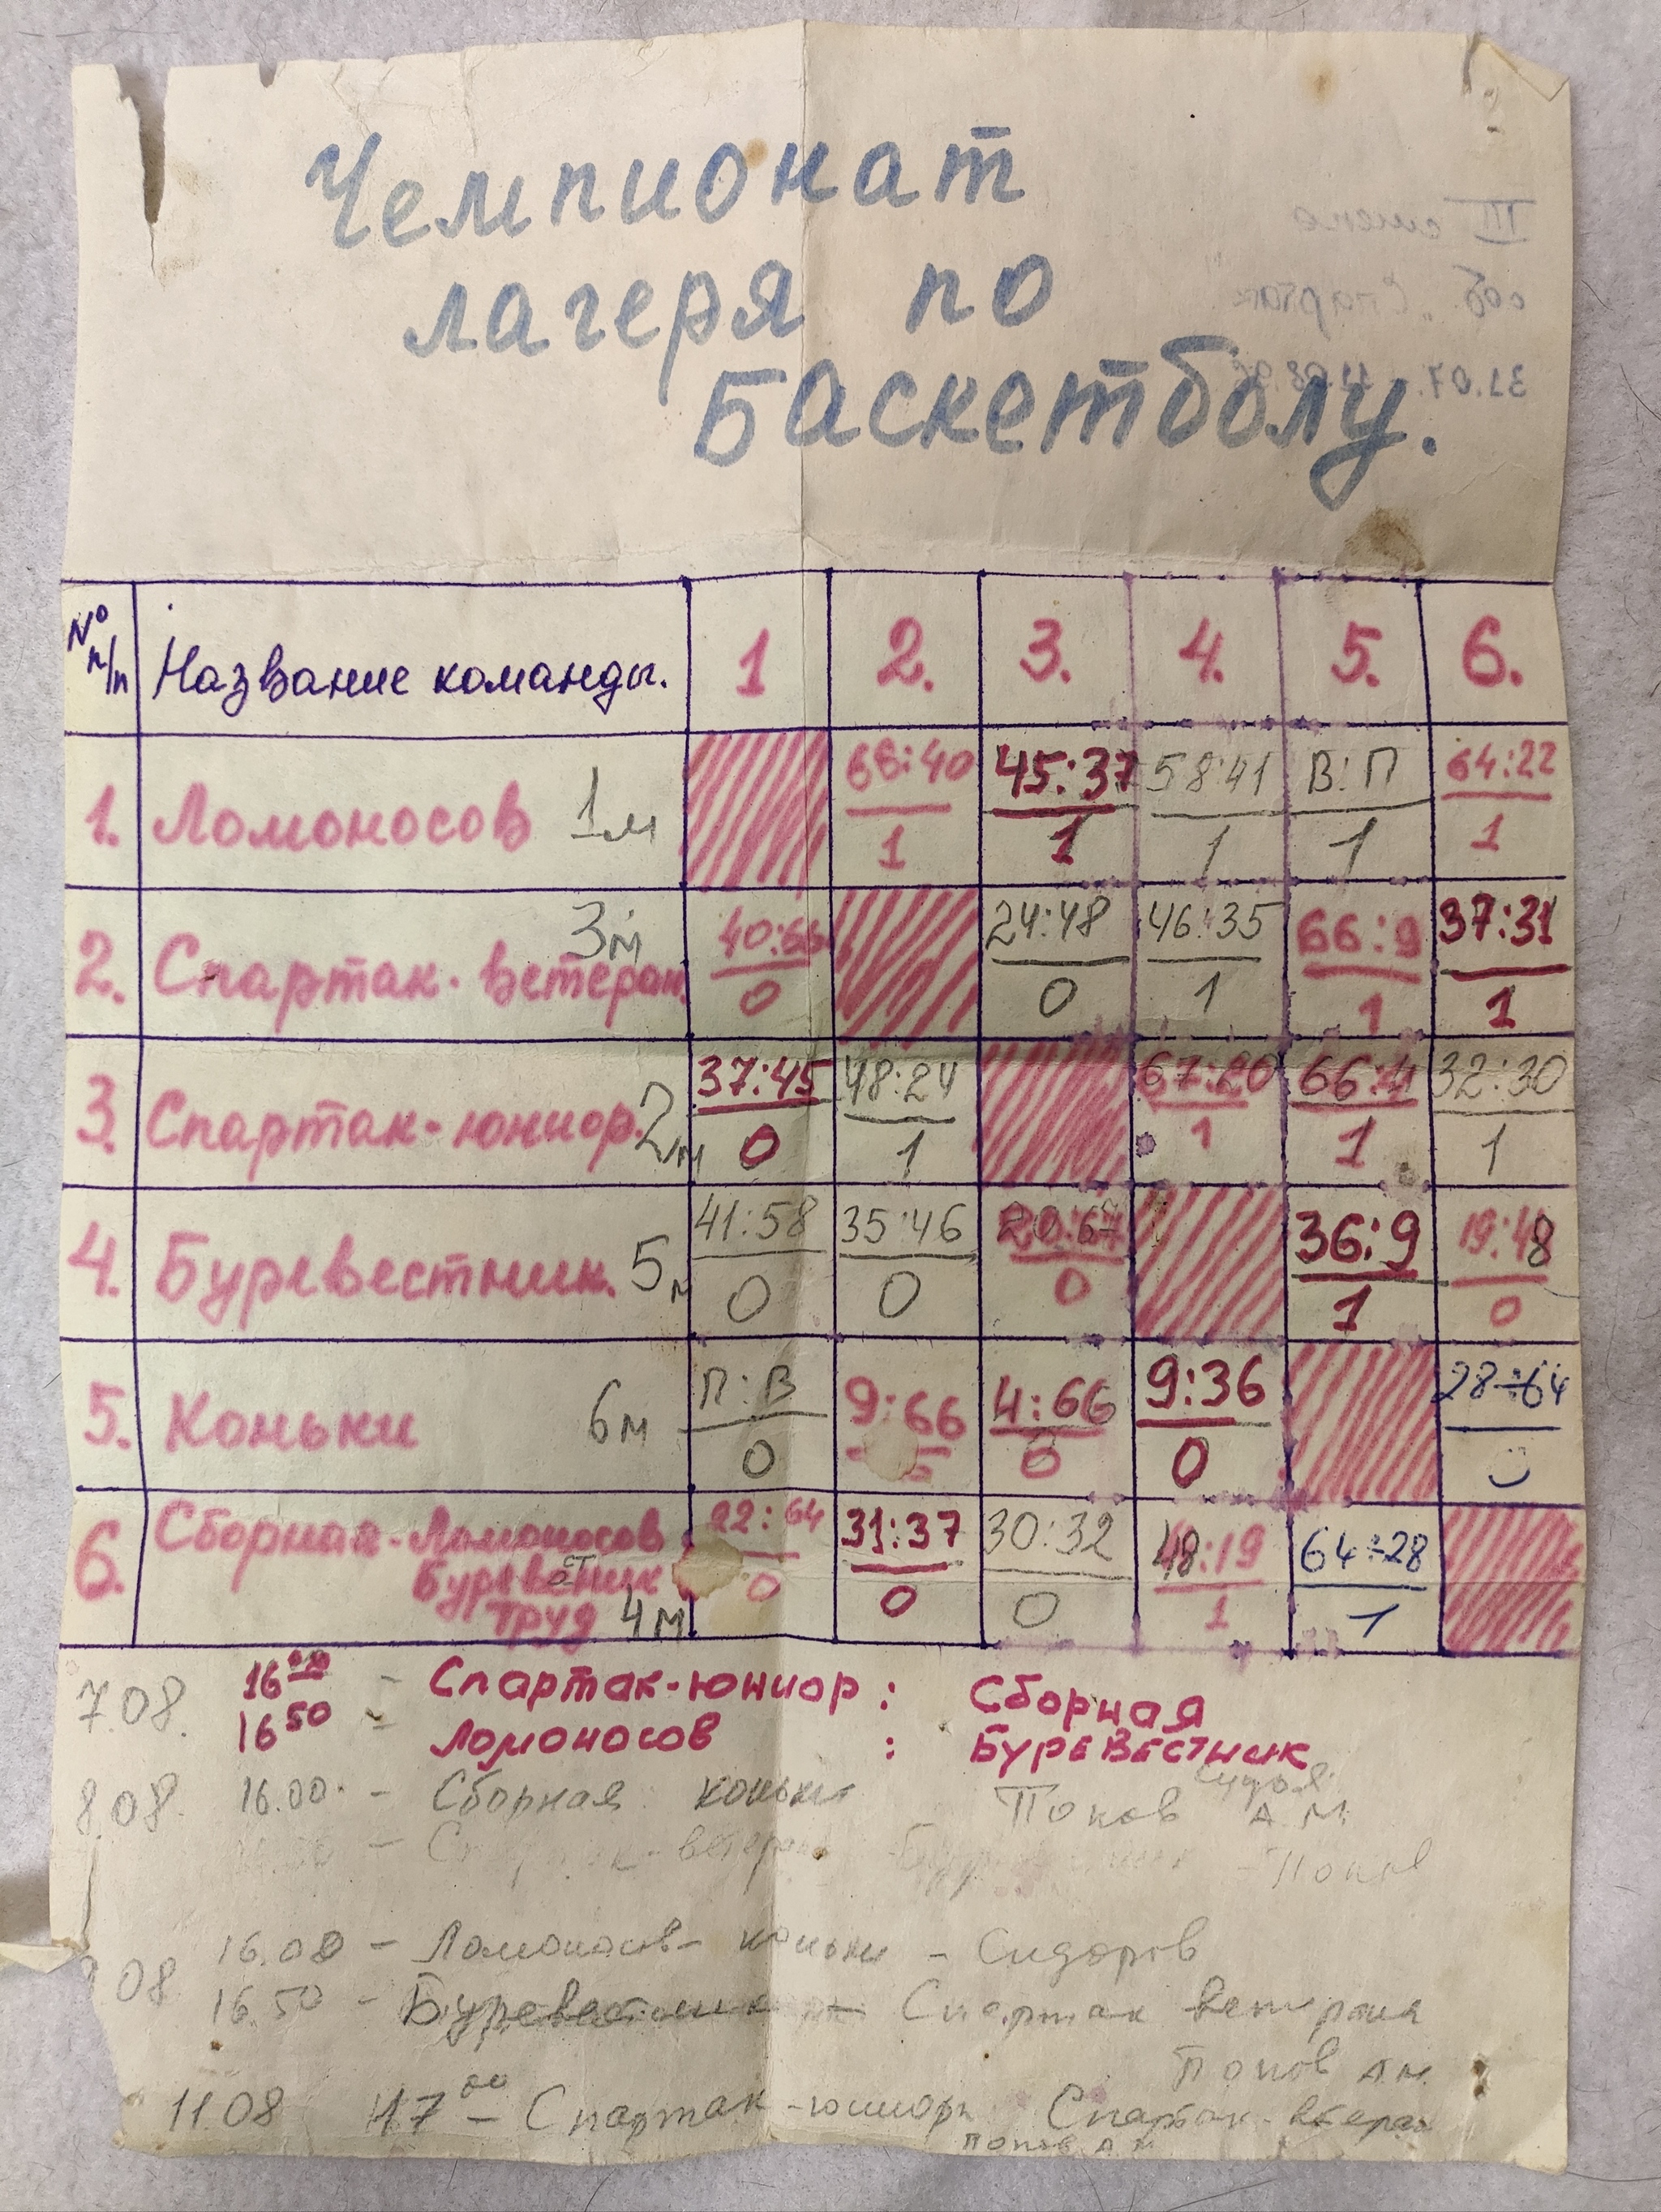 Чемпионат
лагеря по
Баскетболу.
III смена
31.07. 11.08.
№ п/п Название команды. 1 2. 3. 4. 5. 6.
1. Ломоносов 1м 68:40 1 45:37 1 58:41 1 В:П 1 64:22 1
2. Спартак-ветеран. 3м 40:68 0 24:48 0 46:35 1 66:9 1 37:31 1
3. Спартак-юниор. 2м 37:45 0 48:24 1 67:20 1 66:4 1 32:30 1
4. Буревестник. 5м 41:58 0 35:46 0 20:67 0 36:9 1 19:48 0
5. Коньки 6м П:В 0 9:66 4:66 0 9:36 0 28:64
6. Сборная-Ломоносов 22:64 0 31:37 0 30:32 0 48:19 1 64:28 1
Буревестник
труд 4м
7.08. 16 – Спартак-юниор : Сборная
16 50 – Ломоносов : Буревестник
8.08. 16.00. – Сборная коньки Судья Попов А М.
– Спартак-ветеран Буревестник – Попов
08 16.00 – Ломоносов – коньки – Сидоров
16.50 – Буревестник – Спартак ветераны
Попов А.М.
11.08 17 00 – Спартак-юниоры Спартак-ветеран
Попов А М